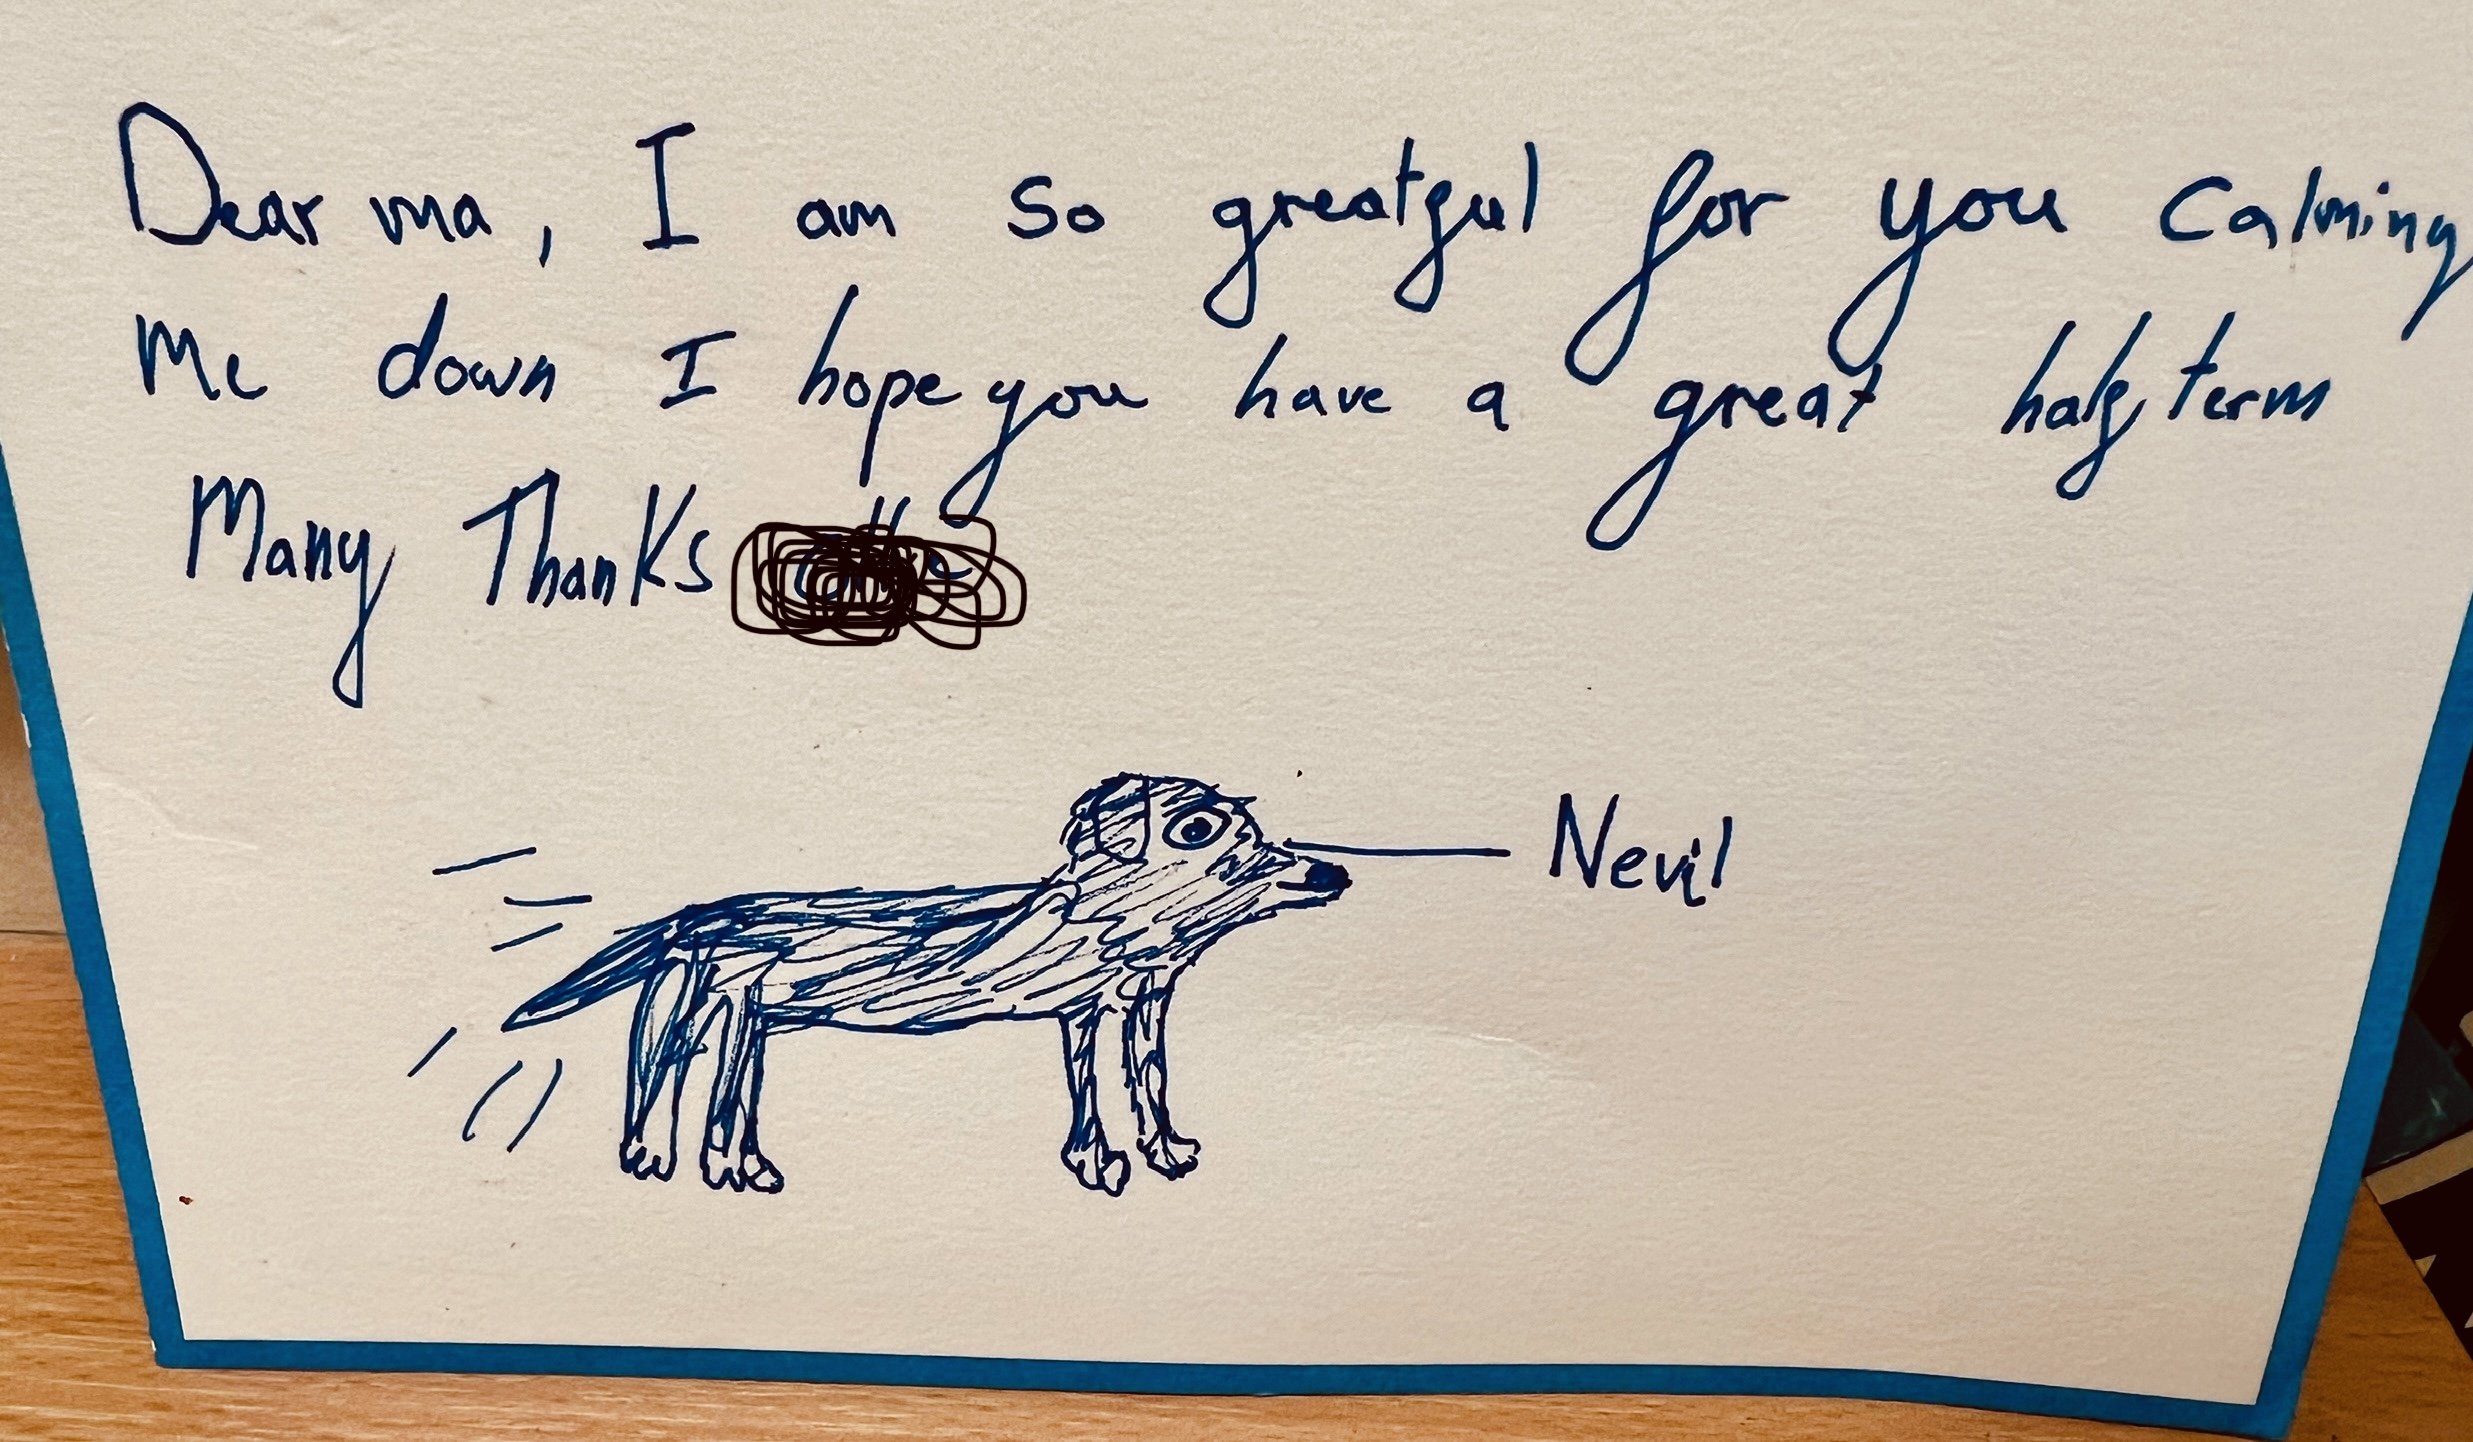 Dear ma, I am so greatful for you calming
me down I hope you have a great half term
Many Thanks
Nevil